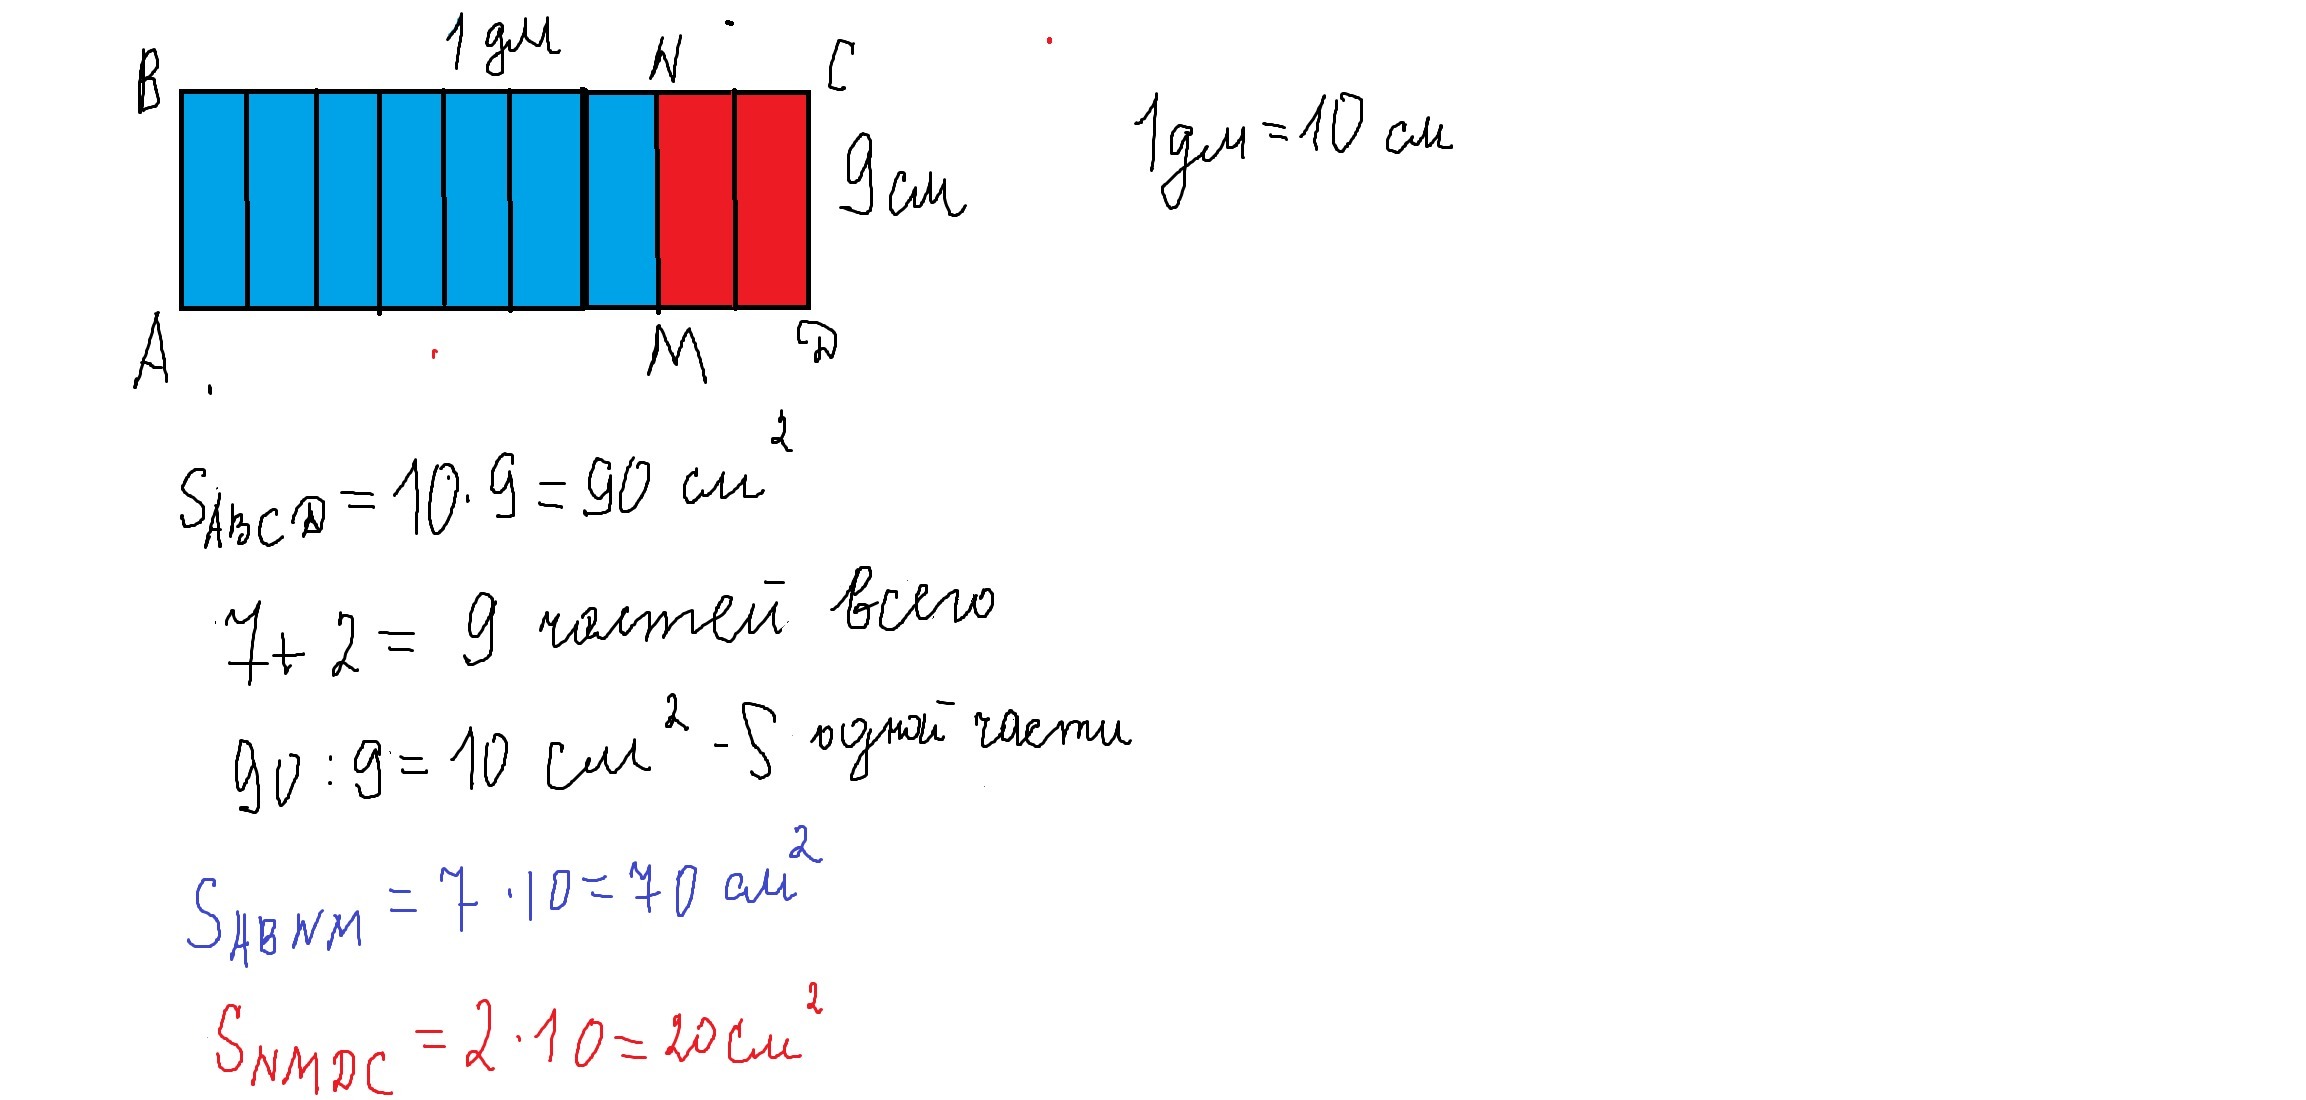 1 дм
B N C
9 см
1 дм = 10 см
A M D
S ABCD = 10 · 9 = 90 см²
7 + 2 = 9 частей всего
90 : 9 = 10 см² - S одной части
S ABNM = 7 · 10 = 70 см²
S NMDC = 2 · 10 = 20 см²